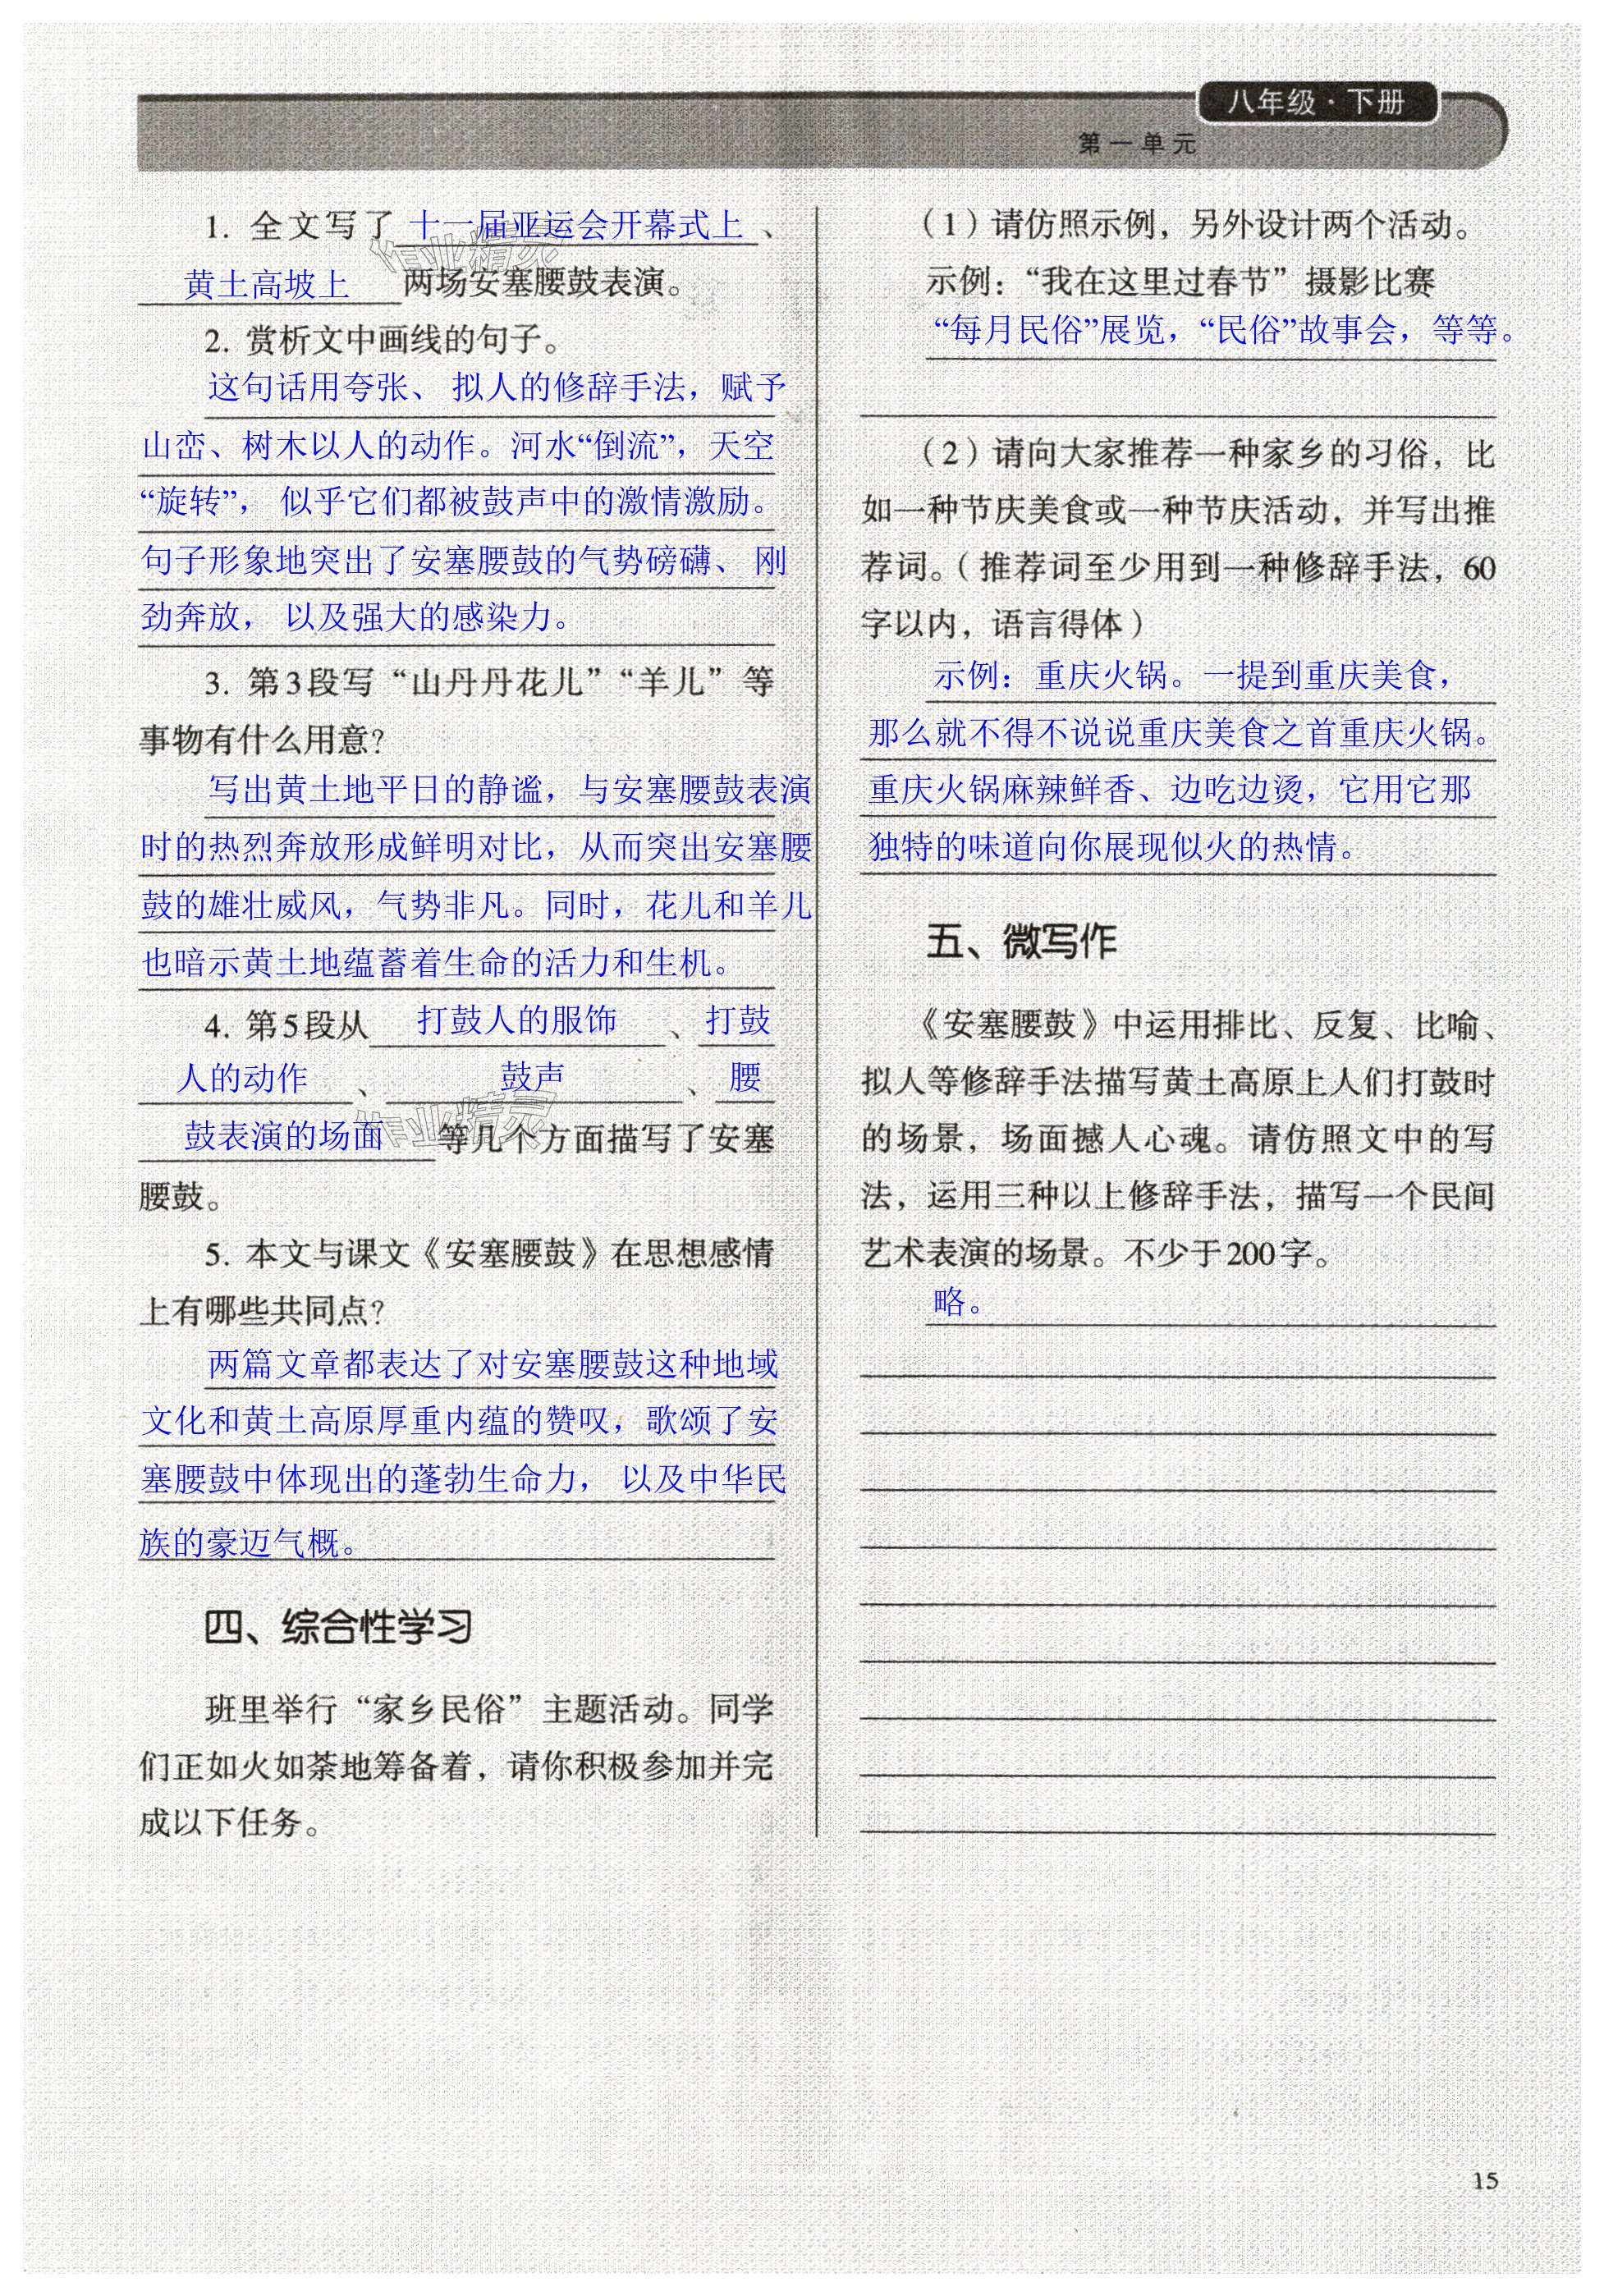 八年级·下册
第一单元
1. 全文写了 十一届亚运会开幕式上 、
黄土高坡上 两场安塞腰鼓表演。
2. 赏析文中画线的句子。
这句话用夸张、 拟人的修辞手法，赋予
山峦、树木以人的动作。河水“倒流”，天空
“旋转”， 似乎它们都被鼓声中的激情激励。
句子形象地突出了安塞腰鼓的气势磅礴、 刚
劲奔放， 以及强大的感染力。
3. 第3段写“山丹丹花儿”“羊儿”等
事物有什么用意？
写出黄土地平日的静谧，与安塞腰鼓表演
时的热烈奔放形成鲜明对比，从而突出安塞腰
鼓的雄壮威风，气势非凡。同时，花儿和羊儿
也暗示黄土地蕴蓄着生命的活力和生机。
4. 第5段从 打鼓人的服饰 、 打鼓
人的动作 、 鼓声 、 腰
鼓表演的场面 等几个方面描写了安塞
腰鼓。
5. 本文与课文《安塞腰鼓》在思想感情
上有哪些共同点？
两篇文章都表达了对安塞腰鼓这种地域
文化和黄土高原厚重内蕴的赞叹，歌颂了安
塞腰鼓中体现出的蓬勃生命力， 以及中华民
族的豪迈气概。
四、综合性学习
班里举行“家乡民俗”主题活动。同学
们正如火如荼地筹备着，请你积极参加并完
成以下任务。
（1）请仿照示例，另外设计两个活动。
示例：“我在这里过春节”摄影比赛
“每月民俗”展览，“民俗”故事会，等等。
（2）请向大家推荐一种家乡的习俗，比
如一种节庆美食或一种节庆活动，并写出推
荐词。（推荐词至少用到一种修辞手法，60
字以内，语言得体）
示例：重庆火锅。一提到重庆美食，
那么就不得不说说重庆美食之首重庆火锅。
重庆火锅麻辣鲜香、边吃边烫，它用它那
独特的味道向你展现似火的热情。
五、微写作
《安塞腰鼓》中运用排比、反复、比喻、
拟人等修辞手法描写黄土高原上人们打鼓时
的场景，场面撼人心魂。请仿照文中的写
法，运用三种以上修辞手法，描写一个民间
艺术表演的场景。不少于200字。
略。
作业精灵
作业精灵
15